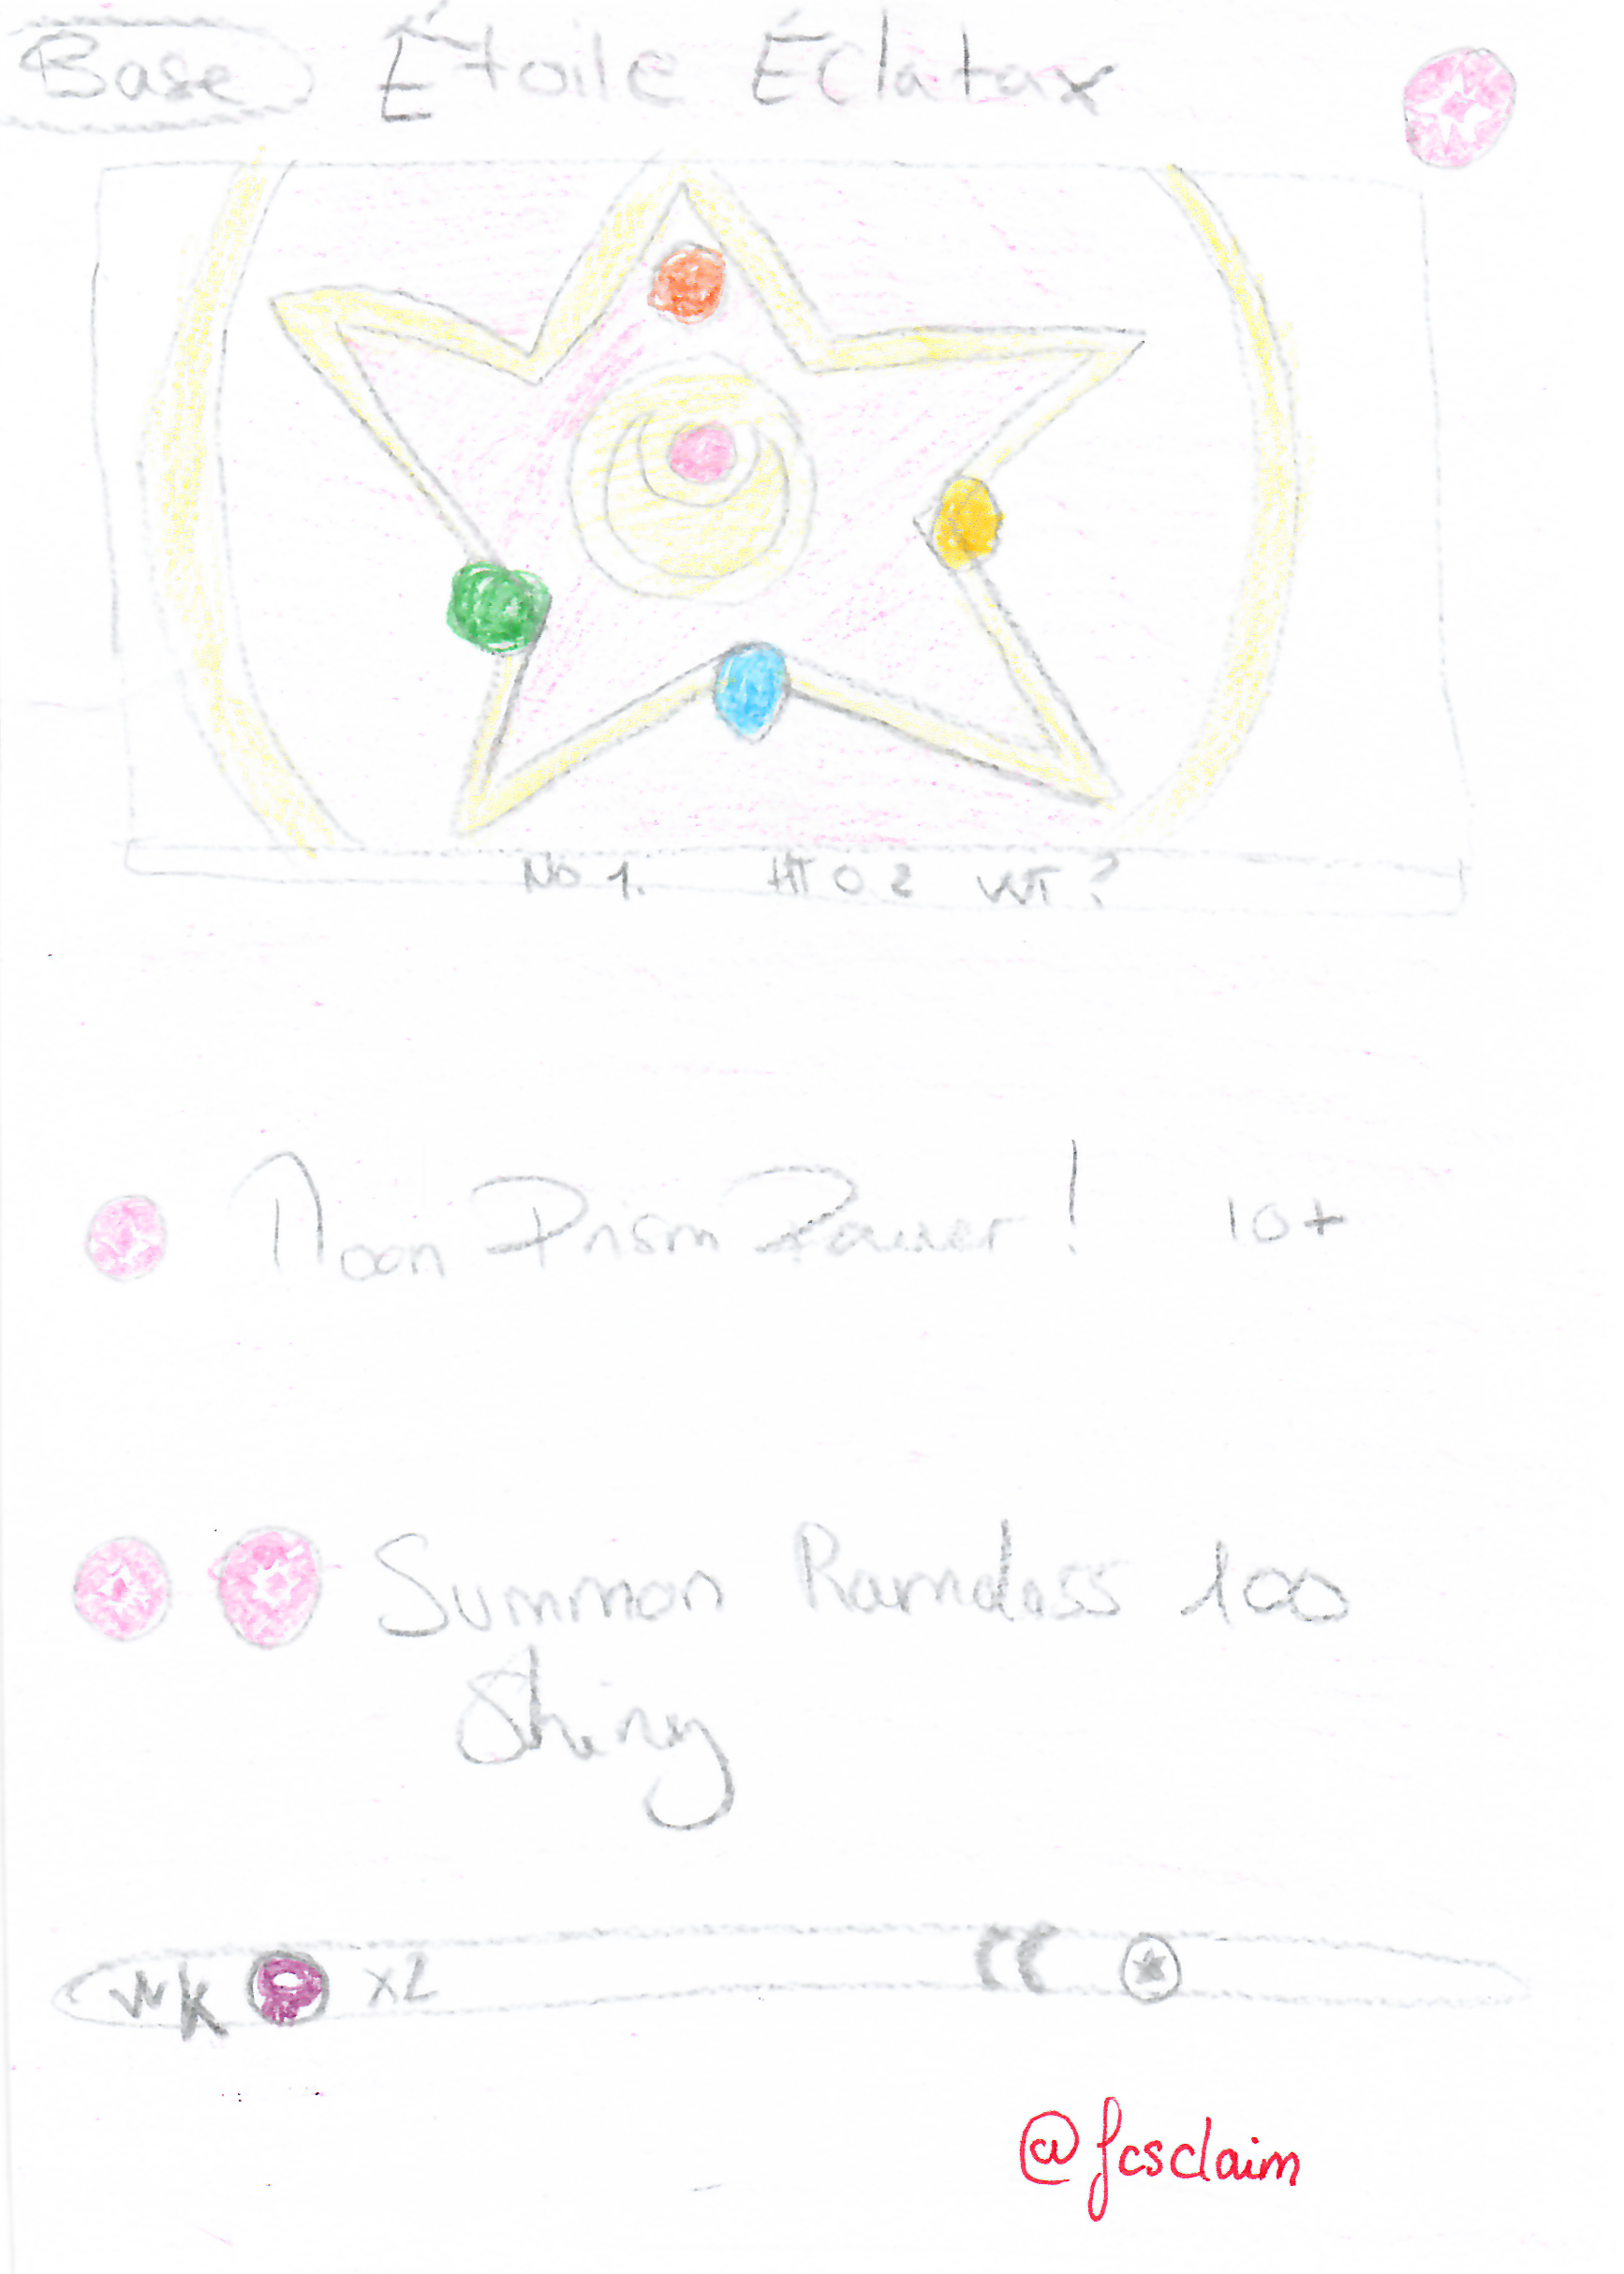 Base Étoile Éclatax
No 1. HT 0.2 WT ?
Moon Prism Power! 10+
Summon Ramdass 100
Shiny
WK x2
@fcsclaim